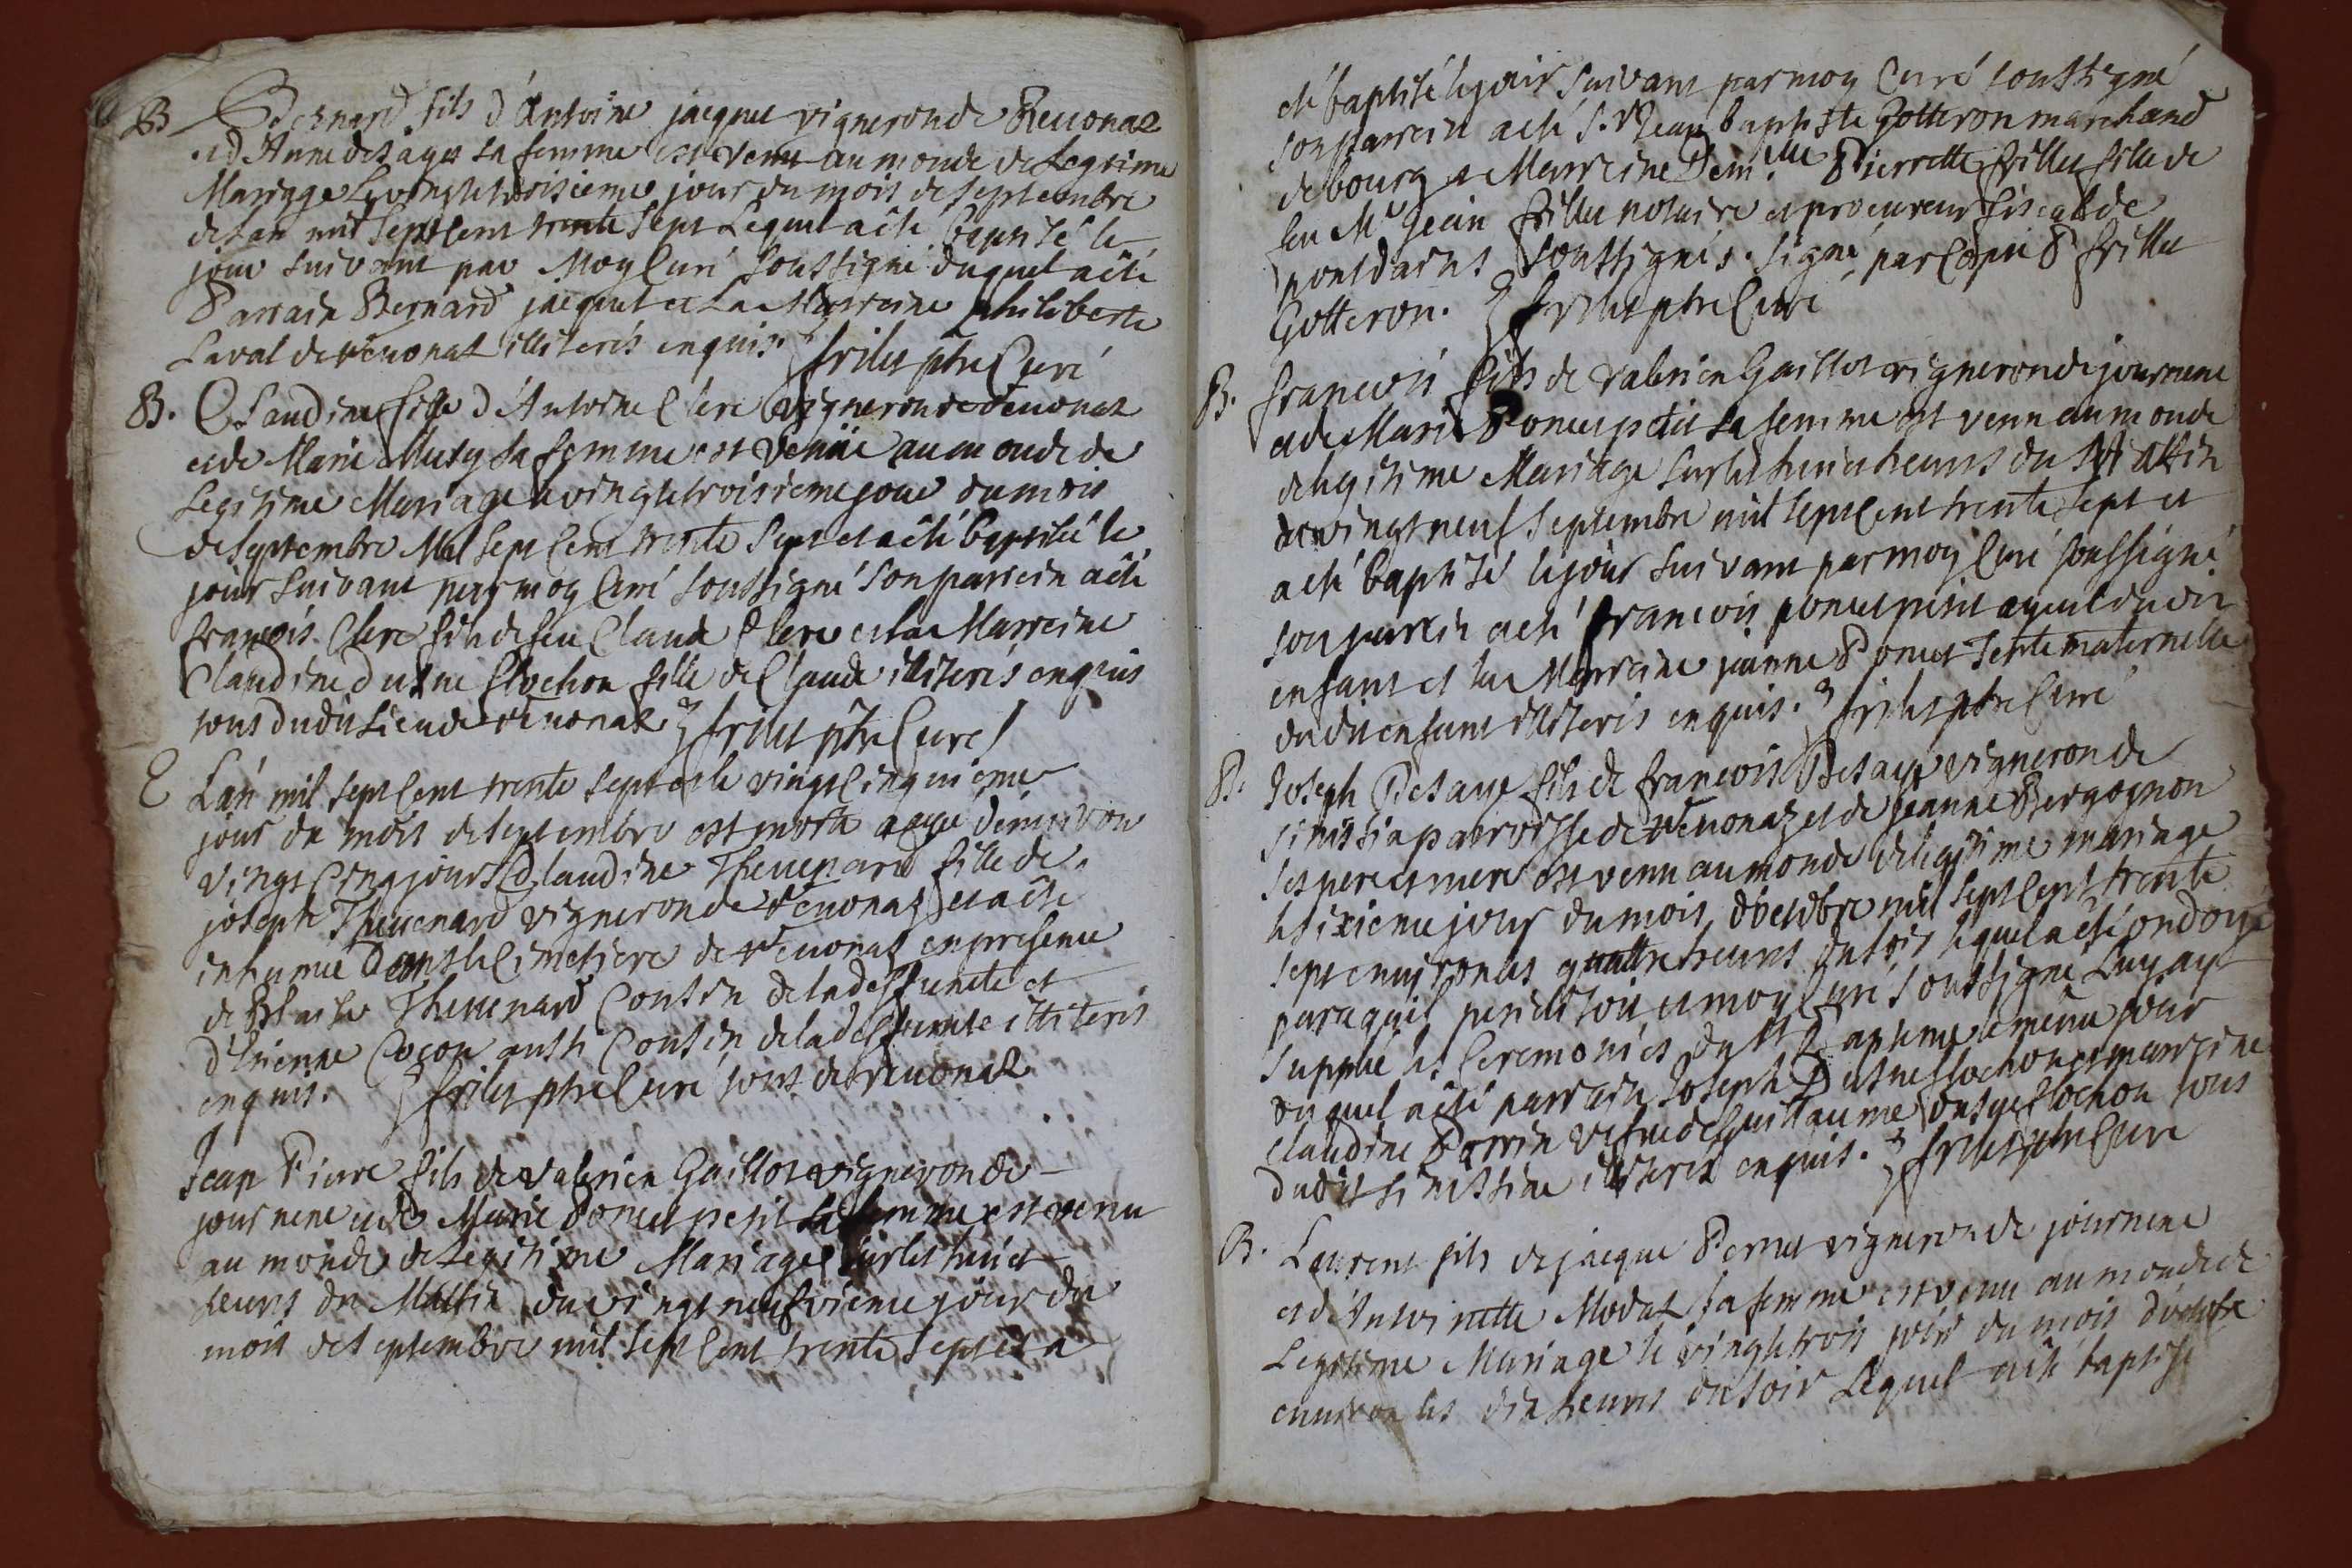 B Bernard fils d'Antoine jacquet vigneron de Reuonas
et d'Anne desayes sa femme est venu au monde de Legitime
Mariage Le vingtetroisieme jour du mois de septembre
de Lan mil sept Cent trente sept Lequel a été baptisé le
jour suivant par Moy Curé soussigné duquel a été
Parrain Bernard jacquet et La Marreine philiberte
Laval de reuonas illiterés enquis. frilet ptre Curé
B. Claudine fille d'Antoine Clerc vigneron de reuonas
et de Marie Musy sa femme est venüe au monde de
Legitime Mariage le vingtetroisieme jour du mois
de septembre Mil sept Cent trente sept et a été baptisée le
jour suivant par moy Curé soussigné son parrein a été
françois Clerc fils de feu Claude Clerc et la Marreine
Claudine du flochon fille de Claude illiterés enquis
tous dudit Lieu de reuonas frilet ptre Curé
E Lan mil sept Cent trente sept et le vingt Cinquieme
jour du mois de septembre est morte agée d'environ
vingt Cinq jours Claudine Theuenard fille de
joseph Theuenard vigneron de reuonas et a été
inhumée dans le Cimetiere de reuonas en presence
de Blaise Theuenard Cousin de la deffuncte et
d'Etienne Coçon aussi Cousin de la deffuncte illiterés
enquis. frilet ptre Curé tous de reuonas
Jean Pierre fils de valerien Gaillot vigneron de
journene et de Marie Poncet petit sa femme est venu
au monde de Legitime Mariage sur les huict
heures du Mattin du vingt neufvieme jour du
mois de septembre mil sept Cent trente sept et a
eté baptisé le jour suivant par moy Curé soussigné
son parrein a été S.r Jean baptiste Gotteron marchand
de bourg et Marreine Dem.elle Pierrette frillet fille de
feu Mr Jean frillet notaire et procureur fiscal de
pontdains soussignés. signé par Copie P frillet
Gotteron. frilet ptre Curé
B. françois fils de valerien Gaillot vigneron de journene
et de Marie Poncet petit sa femme est venu au monde
de legitime Mariage sur les huict heures du Mattin
du vingt neuf septembre mil sept Cent trente sept et
a eté baptisé le jour suivant par moy Curé soussigné
son parrein a eté françois poncet petit ayeul dudit
enfant et la Marreine jeanne Poncet Tente maternelle
dudit enfant illiterés enquis. frilet ptre Curé
B. Joseph Desaye fils de françois Desaye vigneron de
sinissia parroisse de reuonaz et de jeanne Bergognon
ses pere et mere est venu au monde de legitime mariage
le sixieme jour du mois d'octobre mil sept Cent trente
sept environ les quattre heures du soir lequel a eté ondoyé
parce quil periclitoit et moy Curé soussigné Luy ay
supplée les Ceremonies du St Bapteme le même jour
duquel a été parrain Joseph flochon et marreine
Claudine Perrin vefve de Guillaume flochon tous
dudit sinissia illiterés enquis. frilet ptre Curé
B. Laurent fils de jacque Pernet vigneron de journene
et d'Antoinette Modas sa femme est venu au monde de
Legitime Mariage le vingtetrois jour du mois d'octobre
environ les dix heures du soir Lequel a été baptisé